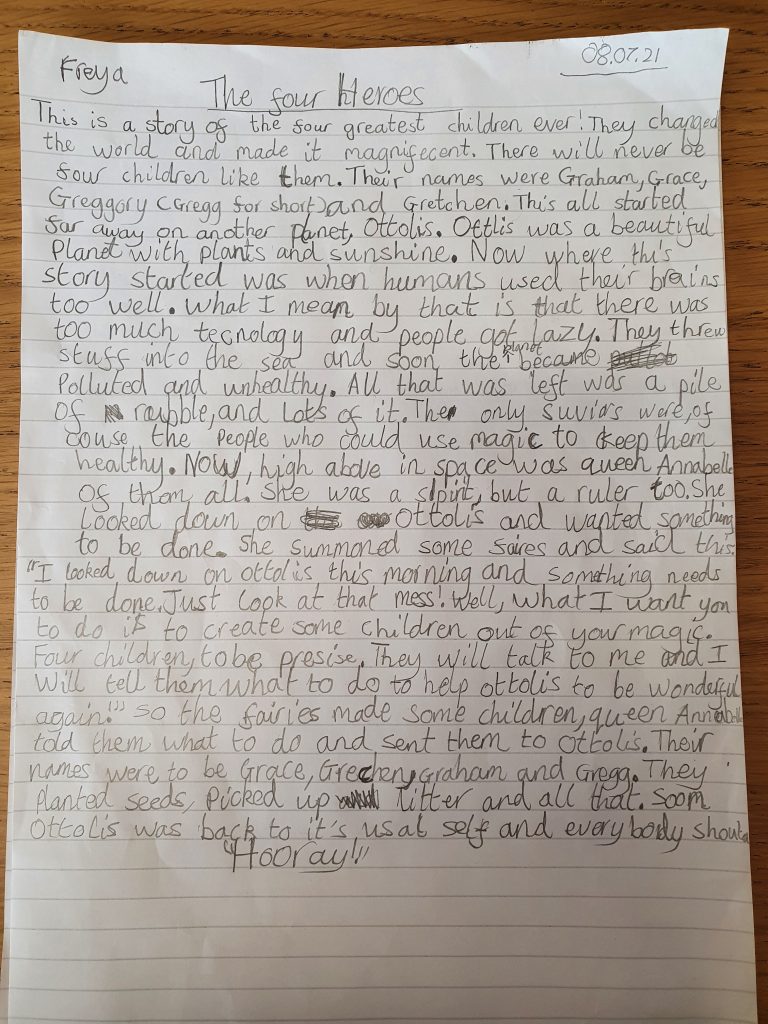 Freya
08.07.21
The four Heroes
This is a story of the four greatest children ever! They changed
the world and made it magnifecent. There will never be
four children like them. Their names were Graham, Grace,
Greggory (Gregg for short) and Gretchen. This all started
far away on another planet, Ottolis. Ottlis was a beautiful
Planet with plants and sunshine. Now where this
story started was when humans used their brains
too well. What I mean by that is that there was
too much tecnology and people got lazy. They threw
stuff into the sea and soon the planet became
Polluted and unhealthy. All that was left was a pile
of rubble, and lots of it. The only suviars were, of
couse the people who could use magic to keep them
healthy. Now, high above in space was queen Annabelle
of them all. She was a spirit, but a ruler too. She
looked down on Ottolis and wanted something
to be done. She summoned some faires and said this:
"I looked down on Ottolis this morning and something needs
to be done. Just look at that mess! Well, what I want you
to do is to create some children out of your magic.
Four children, to be presise. They will talk to me and I
will tell them what to do to help ottolis to be wonderful
again!" So the fairies made some children, queen Annabelle
told them what to do and sent them to Ottolis. Their
names were to be Grace, Grechen, Graham and Gregg. They
planted seeds, picked up litter and all that. Soon
Ottolis was back to it's usal self and everybody shouted
"Hooray!"